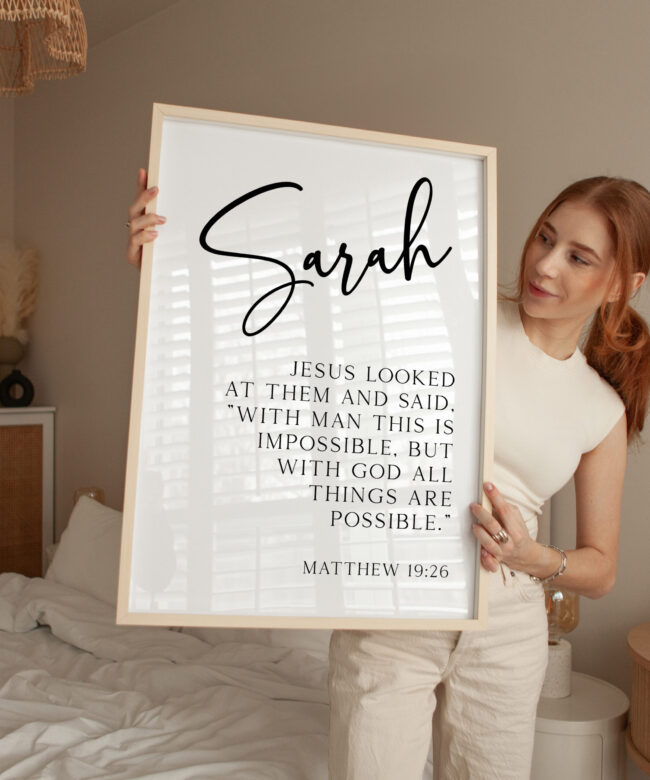 Sarah
JESUS LOOKED
AT THEM AND SAID,
"WITH MAN THIS IS
IMPOSSIBLE, BUT
WITH GOD ALL
THINGS ARE
POSSIBLE."
MATTHEW 19:26